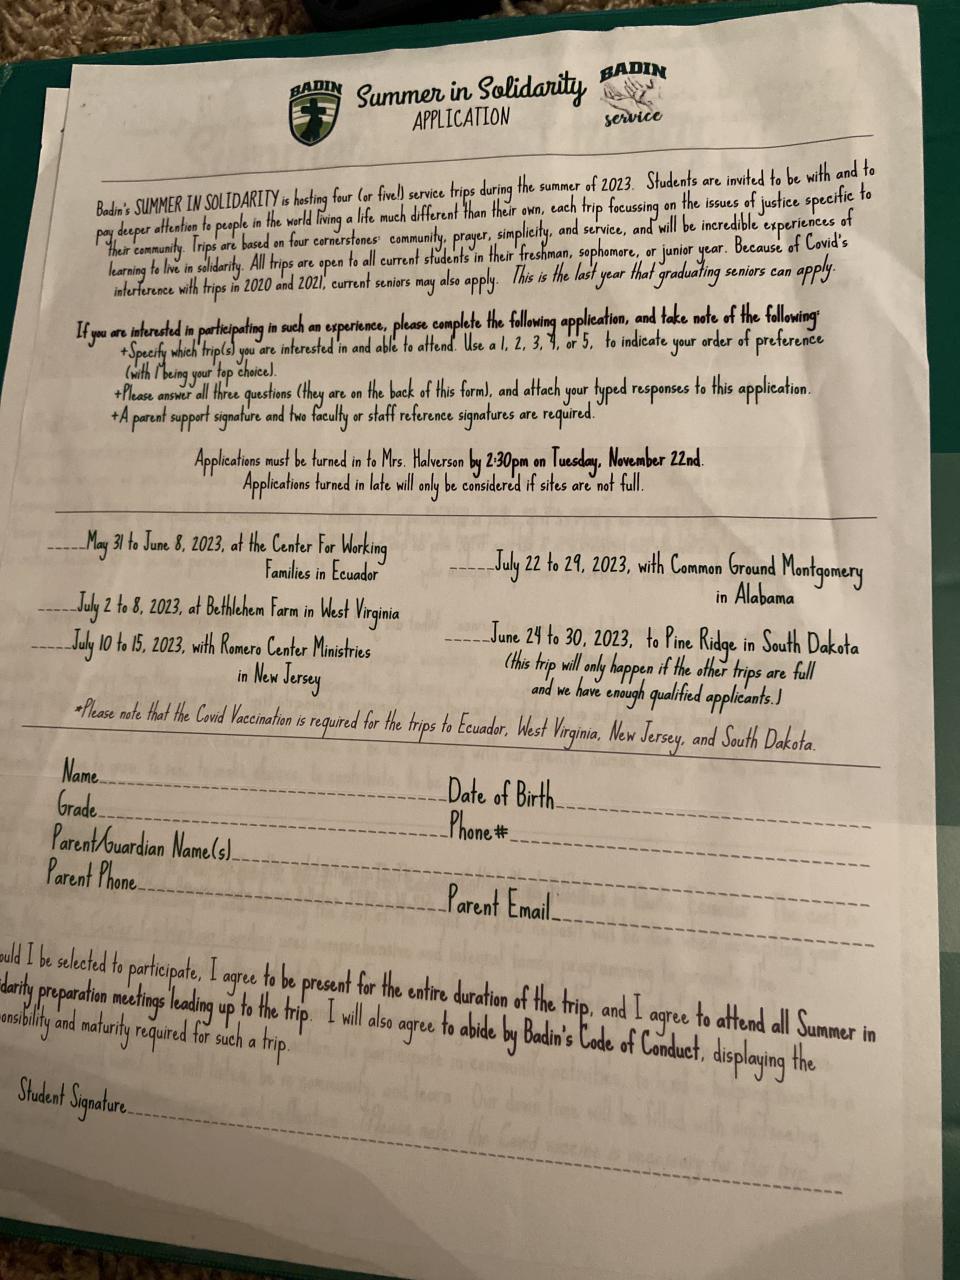 BADIN
Summer in Solidarity
APPLICATION
BADIN
service
Badin's SUMMER IN SOLIDARITY is hosting four (or five!) service trips during the summer of 2023. Students are invited to be with and to
pay deeper attention to people in the world living a life much different than their own, each trip focussing on the issues of justice specific to
their community. Trips are based on four cornerstones: community, prayer, simplicity, and service, and will be incredible experiences of
learning to live in solidarity. All trips are open to all current students in their freshman, sophomore, or junior year. Because of Covid's
interference with trips in 2020 and 2021, current seniors may also apply. This is the last year that graduating seniors can apply.
If you are interested in participating in such an experience, please complete the following application, and take note of the following:
+Specify which trip(s) you are interested in and able to attend. Use a 1, 2, 3, 4, or 5, to indicate your order of preference
(with 1 being your top choice).
+Please answer all three questions (they are on the back of this form), and attach your typed responses to this application.
+A parent support signature and two faculty or staff reference signatures are required.
Applications must be turned in to Mrs. Halverson by 2:30pm on Tuesday, November 22nd.
Applications turned in late will only be considered if sites are not full.
_____May 31 to June 8, 2023, at the Center For Working
Families in Ecuador
_____July 2 to 8, 2023, at Bethlehem Farm in West Virginia
_____July 10 to 15, 2023, with Romero Center Ministries
in New Jersey
_____July 22 to 29, 2023, with Common Ground Montgomery
in Alabama
_____June 24 to 30, 2023, to Pine Ridge in South Dakota
(this trip will only happen if the other trips are full
and we have enough qualified applicants.)
*Please note that the Covid Vaccination is required for the trips to Ecuador, West Virginia, New Jersey, and South Dakota.
Name Date of Birth
Grade Phone#
Parent/Guardian Name(s)
Parent Phone Parent Email
ould I be selected to participate, I agree to be present for the entire duration of the trip, and I agree to attend all Summer in
darity preparation meetings leading up to the trip. I will also agree to abide by Badin's Code of Conduct, displaying the
onsibility and maturity required for such a trip.
Student Signature